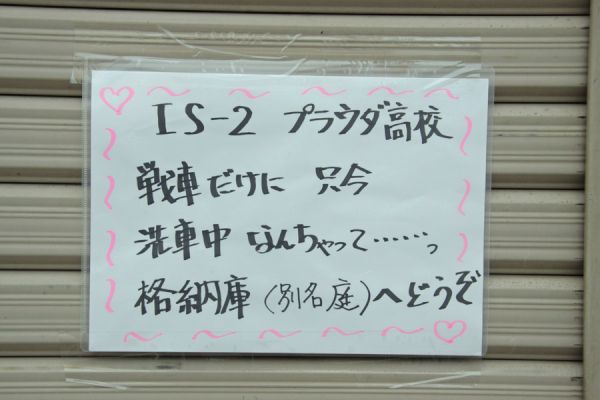 IS-2 プラウダ高校
戦車だけに 只今
洗車中 なんちゃって……っ
格納庫(別名庭)へどうぞ